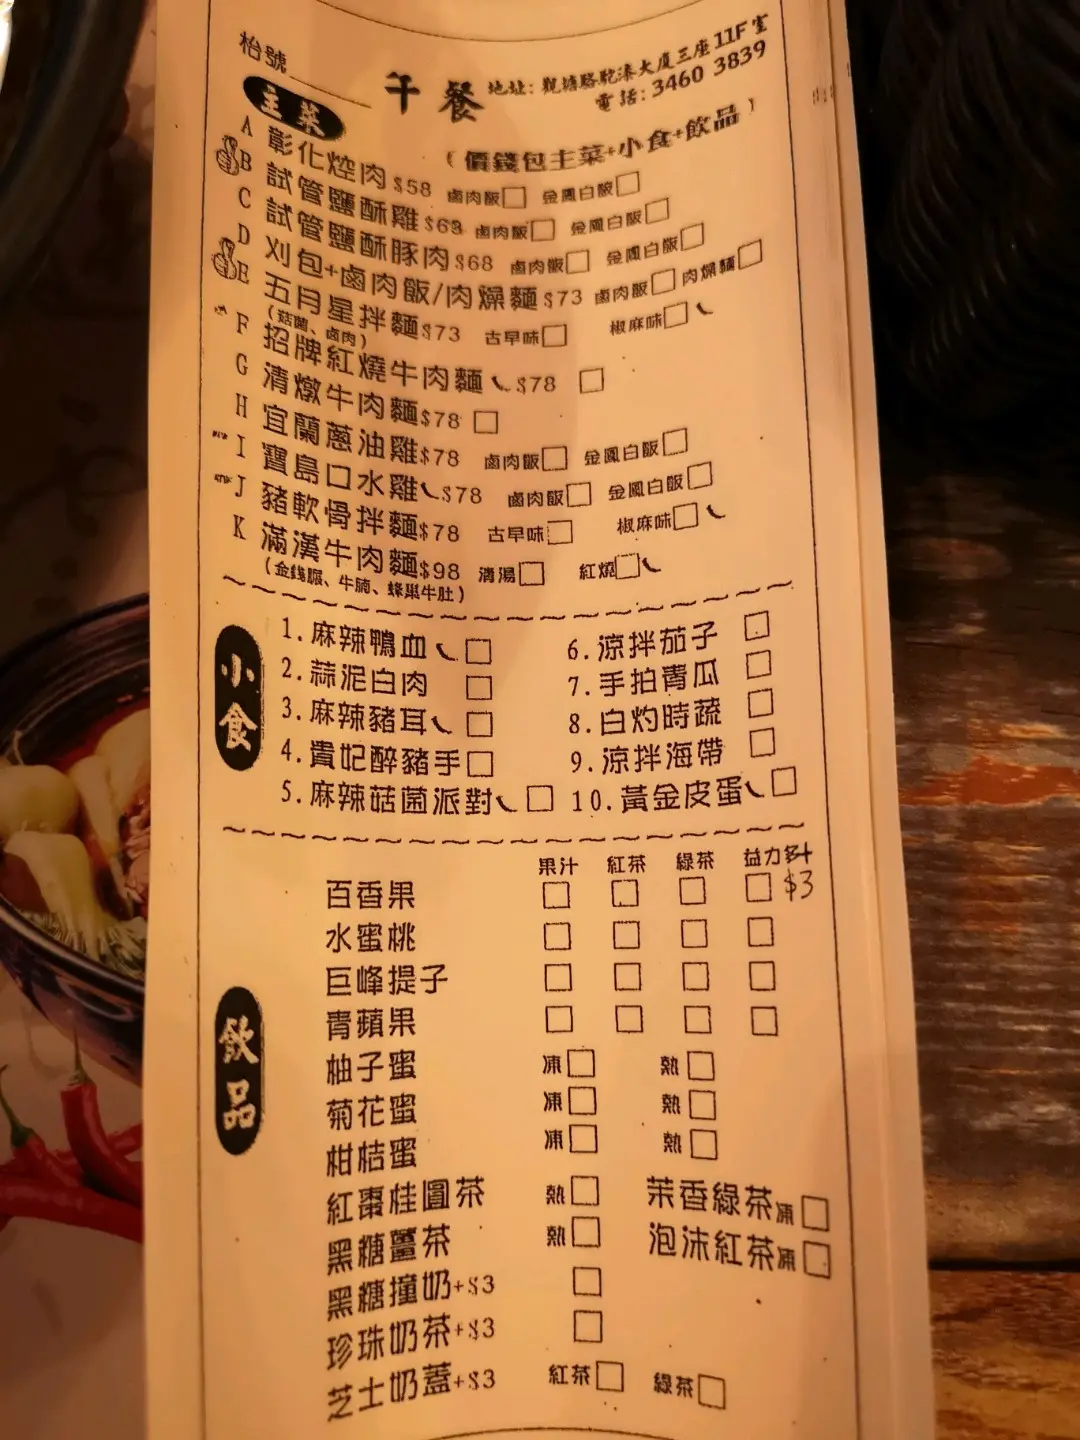 枱號
午餐
地址: 觀塘駱駝漆大廈三座11F室
電話: 3460 3839
主菜
(價錢包主菜+小食+飲品)
A 彰化焢肉$58 鹵肉飯□ 金鳳白飯□
B 試管鹽酥雞$63 鹵肉飯□ 金鳳白飯□
C 試管鹽酥豚肉$68 鹵肉飯□ 金鳳白飯□
D 刈包+鹵肉飯/肉燥麵$73 鹵肉飯□ 肉燥麵□
E 五月星拌麵$73 古早味□ 椒麻味□
(菇菌、鹵肉)
F 招牌紅燒牛肉麵$78 □
G 清燉牛肉麵$78 □
H 宜蘭蔥油雞$78 鹵肉飯□ 金鳳白飯□
I 寶島口水雞$78 鹵肉飯□ 金鳳白飯□
J 豬軟骨拌麵$78 古早味□ 椒麻味□
K 滿漢牛肉麵$98 清湯□ 紅燒□
(金錢𦟌、牛腩、蜂巢牛肚)
小食
1. 麻辣鴨血 □ 6. 涼拌茄子 □
2. 蒜泥白肉 □ 7. 手拍青瓜 □
3. 麻辣豬耳 □ 8. 白灼時蔬 □
4. 貴妃醉豬手□ 9. 涼拌海帶 □
5. 麻辣菇菌派對 □ 10. 黃金皮蛋 □
飲品
果汁 紅茶 綠茶 益力多+$3
百香果 □ □ □ □
水蜜桃 □ □ □ □
巨峰提子 □ □ □ □
青蘋果 □ □ □ □
柚子蜜 凍□ 熱□
菊花蜜 凍□ 熱□
柑桔蜜 凍□ 熱□
紅棗桂圓茶 熱□ 茉香綠茶凍□
黑糖薑茶 熱□ 泡沫紅茶凍□
黑糖撞奶+$3 □
珍珠奶茶+$3 □
芝士奶蓋+$3 紅茶□ 綠茶□